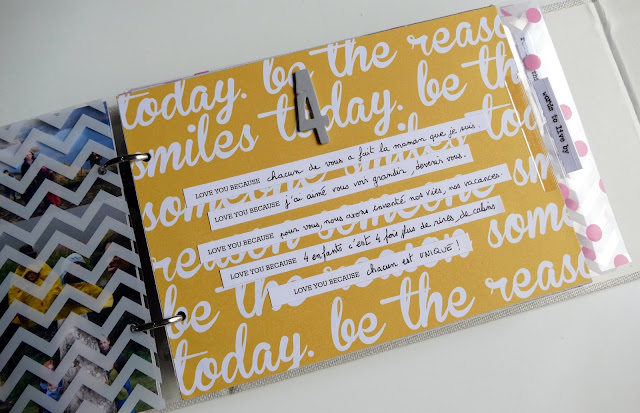 today. be the reaso
smiles today. be the
4
someone smiles toda
reason someone sm
be the reason some
today. be the reaso
LOVE YOU BECAUSE chacun de vous a fait la maman que je suis.
LOVE YOU BECAUSE j'ai aimé vous voir grandir, devenir vous.
LOVE YOU BECAUSE pour vous, nous avons inventé nos vies, nos vacances
LOVE YOU BECAUSE 4 enfants c'est 4 fois plus de rires, de calins
LOVE YOU BECAUSE chacun est UNIQUE !
words to live by